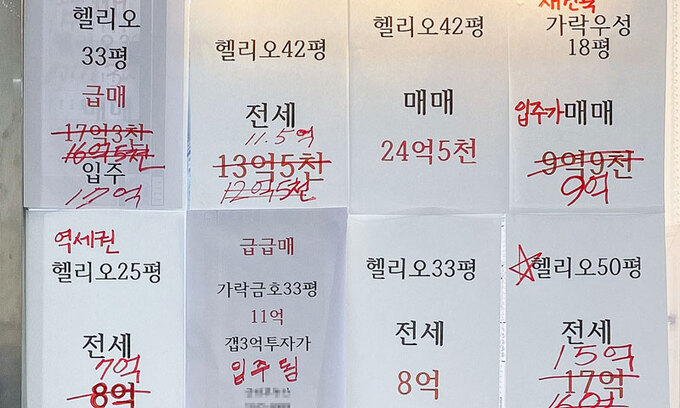 헬리오
33평
급매
17억3천
16억5천
입주
17억
헬리오42평
전세
11.5억
13억5천
12억5천
헬리오42평
매매
24억5천
재건축
가락우성
18평
입주가 매매
9억9천
9억
역세권
헬리오25평
전세
7억
8억
급급매
가락금호33평
11억
갭3억투자가
입주 됨
헬리오33평
전세
8억
☆헬리오50평
전세
15억
17억
16억